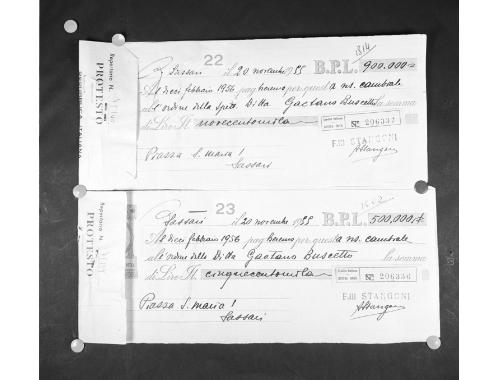 Repertorio N.
PROTESTO
22
1814
Sassari il 20 novembre 1955 B.P.L. 900.000=
Al dieci febbraio 1956 pagheremo per questa ns. cambiale
all'ordine della Spett. Ditta Gaetano Buscetto la somma
di Lire It. novecentomila
Nº 206337
Piazza S. Maria!
Sassari
F.lli STANGONI
AStangoni
Repertorio N.
PROTESTO
23
Sassari il 20 novembre 1955 B.P.L. 500.000,=
Al dieci febbraio 1956 pagheremo per questa ns. cambiale
all'ordine della Ditta Gaetano Buscetto la somma
di Lire It. cinquecentomila
Nº 206336
Piazza S. Maria!
Sassari
F.lli STANGONI
AStangoni